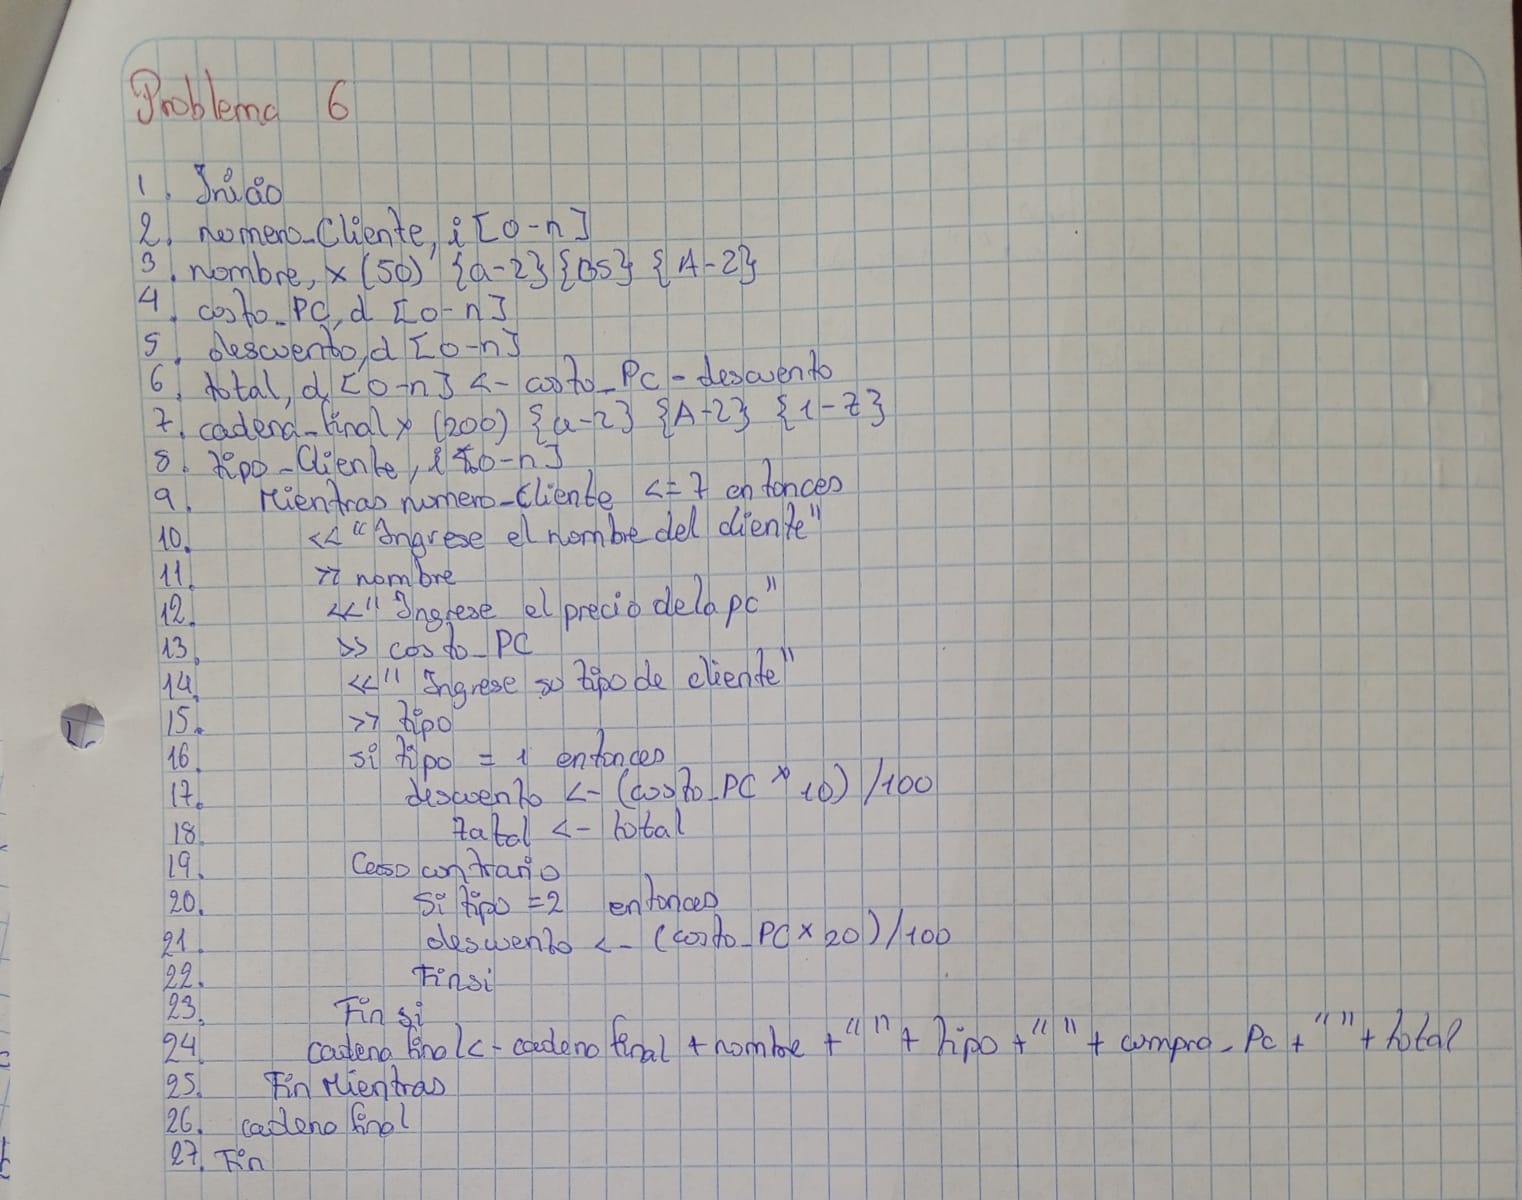 Problema 6
1. Inicio
2. numero_Cliente, i [0-n]
3. nombre, x (50) {a-z} {BS} {A-Z}
4. costo_PC, d [0-n]
5. descuento, d [0-n]
6. total, d [0-n] <- costo_PC - descuento
7. cadena_final x (200) {a-z} {A-Z} {1-z}
8. tipo_Cliente, i [0-n]
9. Mientras numero_Cliente <= 7 entonces
10. << "Ingrese el nombre del cliente"
11. >> nombre
12. << "Ingrese el precio de la pc"
13. >> costo_PC
14. << "Ingrese su tipo de cliente"
15. >> tipo
16. si tipo = 1 entonces
17. descuento <- (costo_PC * 10) /100
18. tatal <- total
19. Caso contrario
20. Si tipo = 2 entonces
21. descuento <- (costo_PC x 20) /100
22. Finsi
23. Fin si
24. cadena final <- cadena final + nombre + " " + tipo + " " + compra_Pc + " " + total
25. Fin Mientras
26. cadena final
27. Fin